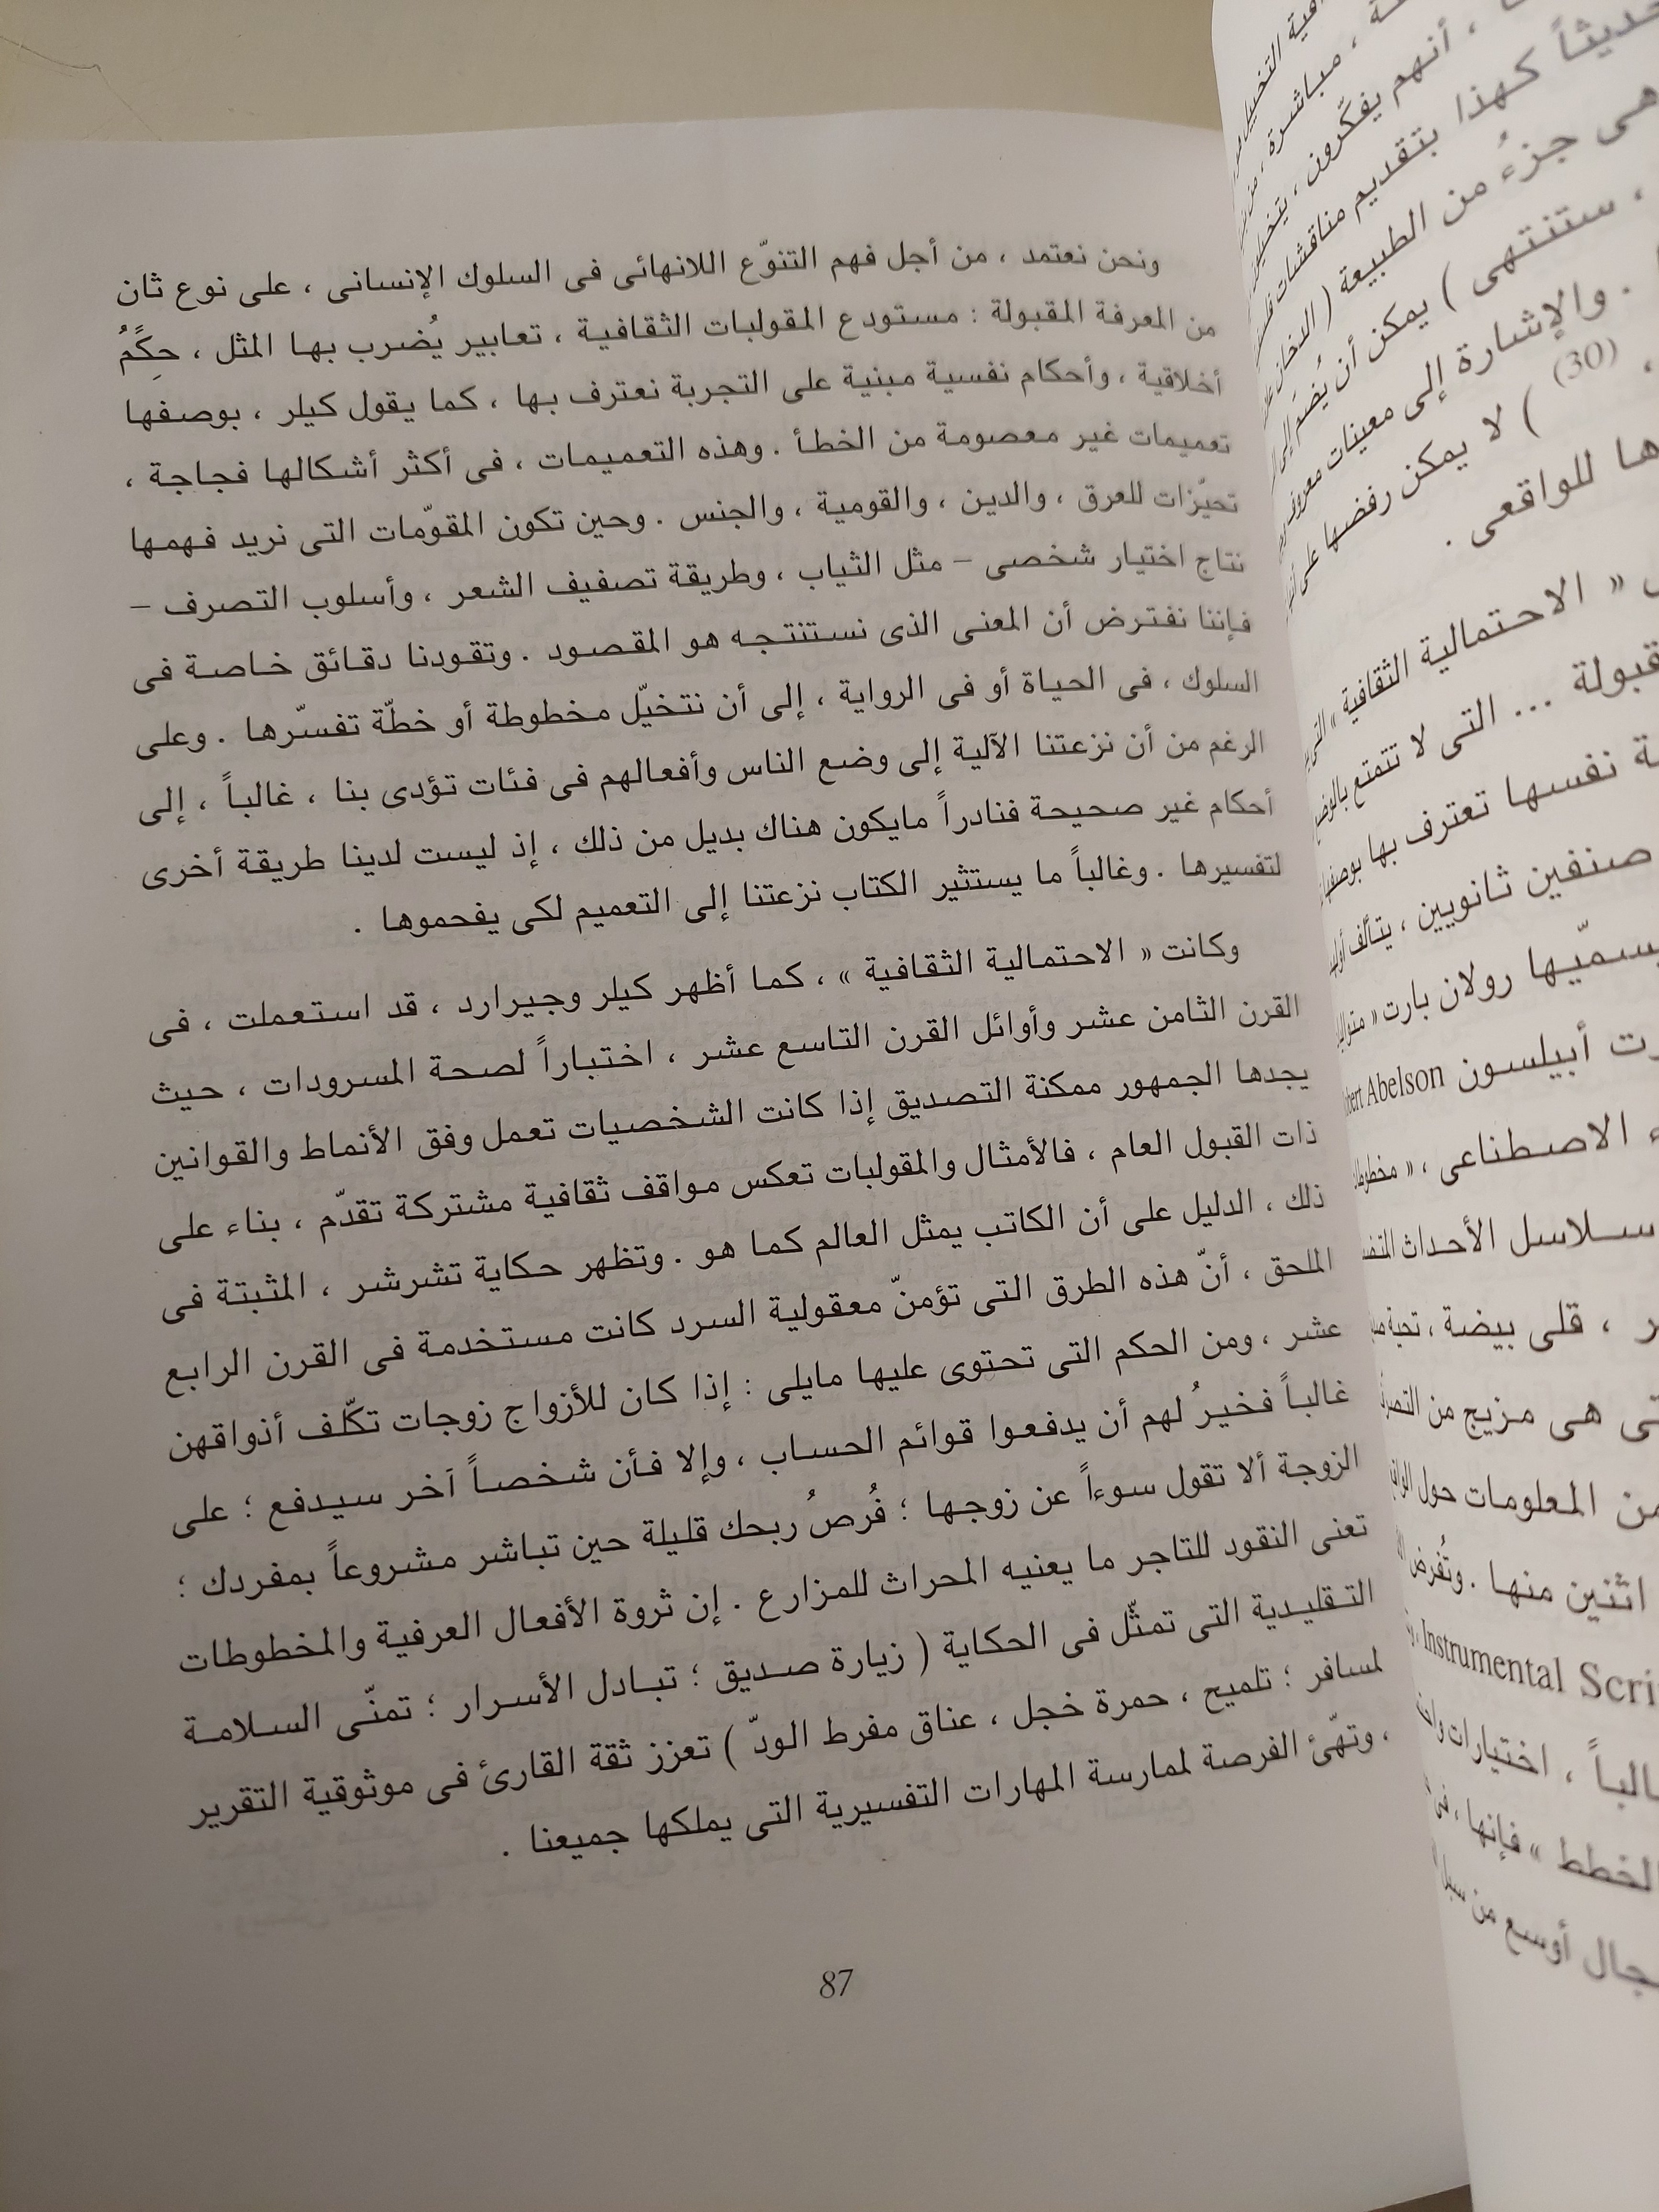 ونحن نعتمد ، من أجل فهم التنوّع اللانهائى فى السلوك الإنسانى ، على نوع ثان
من المعرفة المقبولة : مستودع المقولبات الثقافية ، تعابير يُضرب بها المثل ، حِكَمٌ
أخلاقية ، وأحكام نفسية مبنية على التجربة نعترف بها ، كما يقول كيلر ، بوصفها
تعميمات غير معصومة من الخطأ . وهذه التعميمات ، فى أكثر أشكالها فجاجة ،
تحيّزات للعرق ، والدين ، والقومية ، والجنس . وحين تكون المقوّمات التى نريد فهمها
نتاج اختيار شخصى – مثل الثياب ، وطريقة تصفيف الشعر ، وأسلوب التصرف –
فإننا نفترض أن المعنى الذى نستنتجه هو المقصود . وتقودنا دقائق خاصة فى
السلوك ، فى الحياة أو فى الرواية ، إلى أن نتخيّل مخطوطة أو خطّة تفسّرها . وعلى
الرغم من أن نزعتنا الآلية إلى وضع الناس وأفعالهم فى فئات تؤدى بنا ، غالباً ، إلى
أحكام غير صحيحة فنادراً مايكون هناك بديل من ذلك ، إذ ليست لدينا طريقة أخرى
لتفسيرها . وغالباً ما يستثير الكتاب نزعتنا إلى التعميم لكى يفحموها .
وكانت « الاحتمالية الثقافية » ، كما أظهر كيلر وجيرارد ، قد استعملت ، فى
القرن الثامن عشر وأوائل القرن التاسع عشر ، اختباراً لصحة المسرودات ، حيث
يجدها الجمهور ممكنة التصديق إذا كانت الشخصيات تعمل وفق الأنماط والقوانين
ذات القبول العام ، فالأمثال والمقولبات تعكس مواقف ثقافية مشتركة تقدّم ، بناء على
ذلك ، الدليل على أن الكاتب يمثل العالم كما هو . وتظهر حكاية تشرشر ، المثبتة فى
الملحق ، أنّ هذه الطرق التى تؤمنّ معقولية السرد كانت مستخدمة فى القرن الرابع
عشر ، ومن الحكم التى تحتوى عليها مايلى : إذا كان للأزواج زوجات تكّلف أذواقهن
غالباً فخيرُ لهم أن يدفعوا قوائم الحساب ، وإلا فأن شخصاً آخر سيدفع ؛ على
الزوجة ألا تقول سوءاً عن زوجها ؛ فُرصُ ربحك قليلة حين تباشر مشروعاً بمفردك ؛
تعنى النقود للتاجر ما يعنيه المحراث للمزارع . إن ثروة الأفعال العرفية والمخطوطات
التقليدية التى تمثّل فى الحكاية ( زيارة صديق ؛ تبادل الأسرار ؛ تمنّى السلامة
لمسافر ؛ تلميح ، حمرة خجل ، عناق مفرط الودّ ) تعزز ثقة القارئ فى موثوقية التقرير
، وتهّئ الفرصة لممارسة المهارات التفسيرية التى يملكها جميعنا .
87
، أنهم يفكّرون ،
كهذا بتقديم مناقشات
هى جزءُ من الطبيعة (
، ستنتهى ) يمكن أن يُضم إلى
. والإشارة إلى معينات
، (30) ) لا يمكن رفضها على
للواقعى .
« الاحتمالية الثقافية »
... التى لا تتمتع
نفسها تعترف بها
صنفين ثانويين ، يتألف
رولان بارت «
أبيلسون Abelson
الاصطناعى ، «
سلاسل الأحداث
، قلى بيضة ،
هى مزيج من
من المعلومات حول
اثنين منها .
Instrumental
، اختيارات
الخطط » فإنها ،
أوسع من